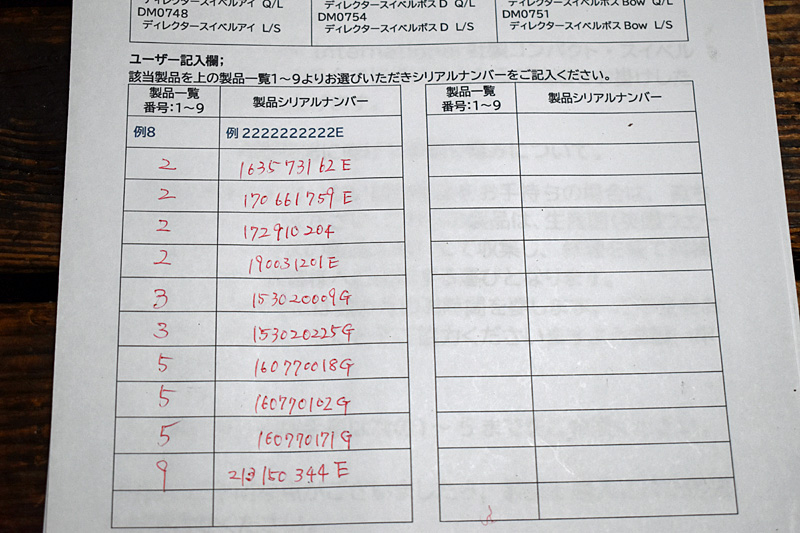 ディレクタースイベルアイ Q/L
DM0748
ディレクタースイベルアイ L/S
ディレクタースイベルボスD Q/L
DM0754
ディレクタースイベルボス D L/S
ディレクタースイベルボスBow Q/L
DM0751
ディレクタースイベルボス Bow L/S
ユーザー記入欄;
該当製品を上の製品一覧1～9よりお選びいただきシリアルナンバーをご記入ください。
製品一覧
番号:1～9
製品シリアルナンバー
例8
例 2222222222E
2
163573162E
2
170661759E
2
172910204
2
190031201E
3
153020009G
3
153020225G
5
160770018G
5
160770102G
5
160770171G
9
213150344E
製品一覧
番号:1～9
製品シリアルナンバー